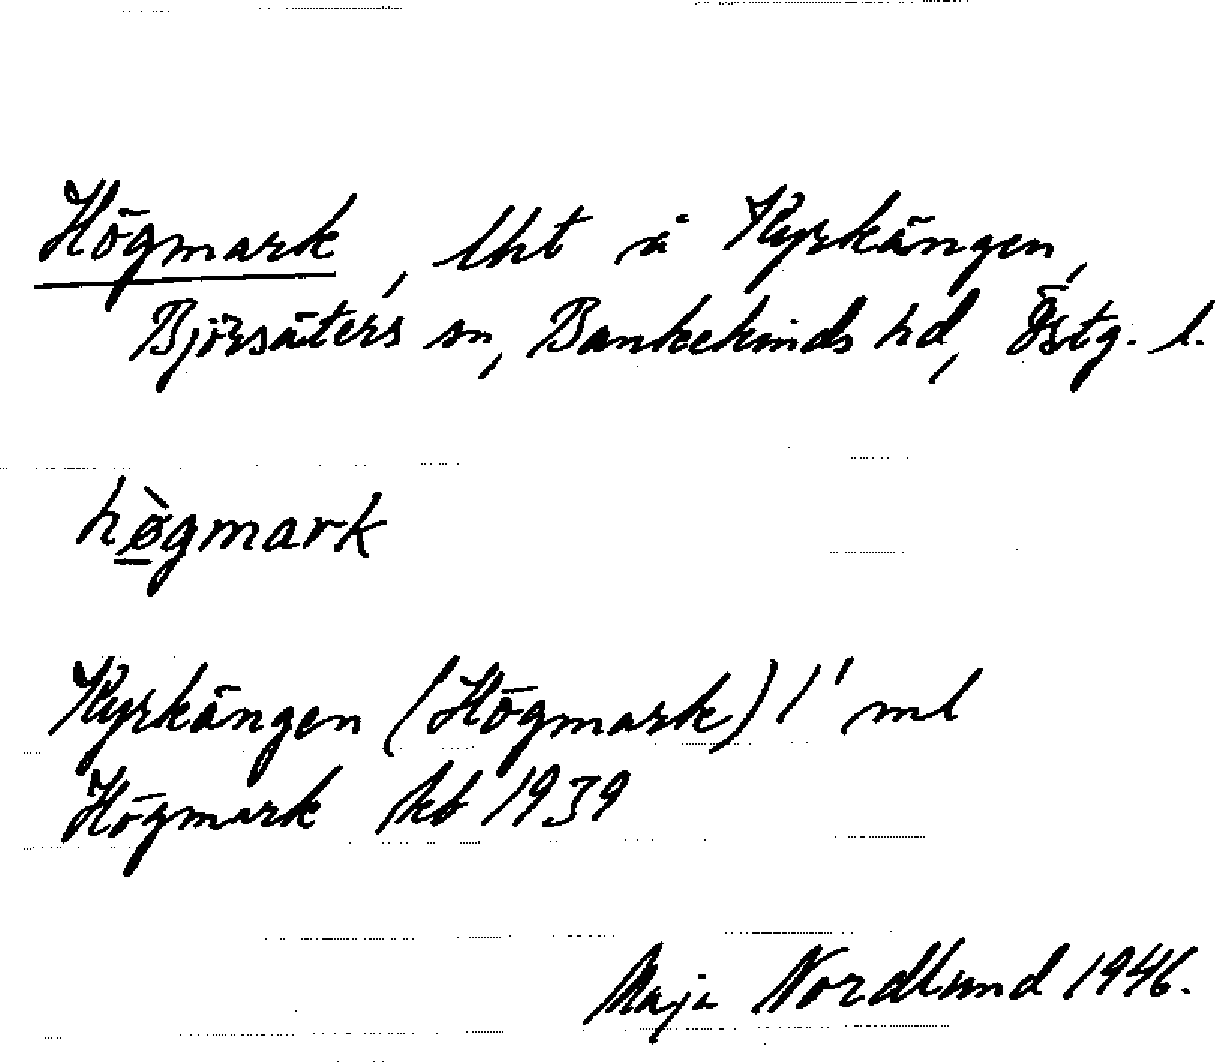 Högmark, lht å Kyrkängen,
Björsäters sn, Bankekinds hd, Östg. l.
hø̀gmark
Kyrkängen (Högmark) 1' ml
Högmark kb 1939
Maja Nordlund 1946.